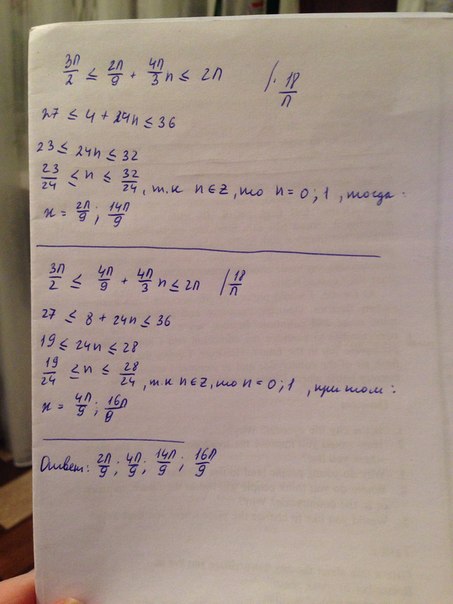 3π/2 ≤ 2π/9 + 4π/3 n ≤ 2π /· 18/π
27 ≤ 4 + 24n ≤ 36
23 ≤ 24n ≤ 32
23/24 ≤ n ≤ 32/24, т.к n∈Z, то n = 0; 1, тогда:
x = 2π/9; 14π/9
3π/2 ≤ 4π/9 + 4π/3 n ≤ 2π /· 18/π
27 ≤ 8 + 24n ≤ 36
19 ≤ 24n ≤ 28
19/24 ≤ n ≤ 28/24, т.к n∈Z, то n = 0; 1, при том:
x = 4π/9; 16π/9
Ответ: 2π/9; 4π/9; 14π/9; 16π/9